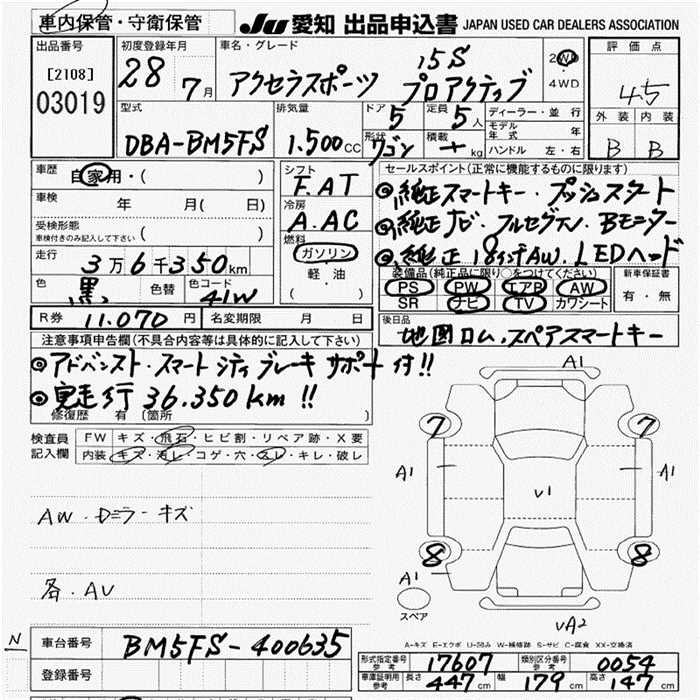 車内保管・守衛保管 JU 愛知 出品申込書 JAPAN USED CAR DEALERS ASSOCIATION
出品番号 初度登録年月 車名・グレード 評価点
[2108] 28 7月 アクセラスポーツ 15S プロアクティブ 2WD ・ 4WD 4.5
03019
型式 排気量 ドア 定員 ディーラー・並行 外装 内装
DBA-BM5FS 1.500cc 5 5人 モデル年式 年
形状 ワゴン 積載 kg ハンドル 左・右 B B
車歴 自家用・( ) シフト F.AT セールスポイント(正常に機能するものに限ります)
車検 年 月( 日) 冷房 A.AC ◎純正スマートキー・プッシュスタート
受検形態 車検付きのみ記入して下さい ( ) 燃料 ◎純正ナビ・フルセグTV・Bモニター
走行 3万6千350km ガソリン ◎純正18インチAW.LEDヘッド
色 黒 色替 色コード 41W 軽・油 ( )
装備品(純正品に限り○をつけてください) 新車保証書
PS PW エアB AW 有・無
SR ナビ TV カワシート
R券 11.070円 名変期限 月 日 後日品 地図ロム.スペアスマートキー
注意事項申告欄(不具合内容等は具体的に記入して下さい)
◎アドバンスト・スマートシティブレーキサポート付!!
◎実走行36.350km!!
修復歴 有 [箇所 ]
検査員記入欄 FW キズ・飛石・ヒビ割・リペア跡・X要
内装 キズ・汚レ・コゲ・穴・スレ・キレ・破レ
AW・ドミラーキズ
各.AU
A1
7 7
A1 V1 A1
8 8
A1
スペア VA2
A=キズ E=エクボ U=凹み W=補修跡 S=サビ C=腐食 XX=交換済
N 車台番号 BM5FS-400635
登録番号
形式指定番号 参考 17607 類別区分番号 参考 0054
車庫証明用 参考 長さ 447cm 幅 179cm 高さ 147cm